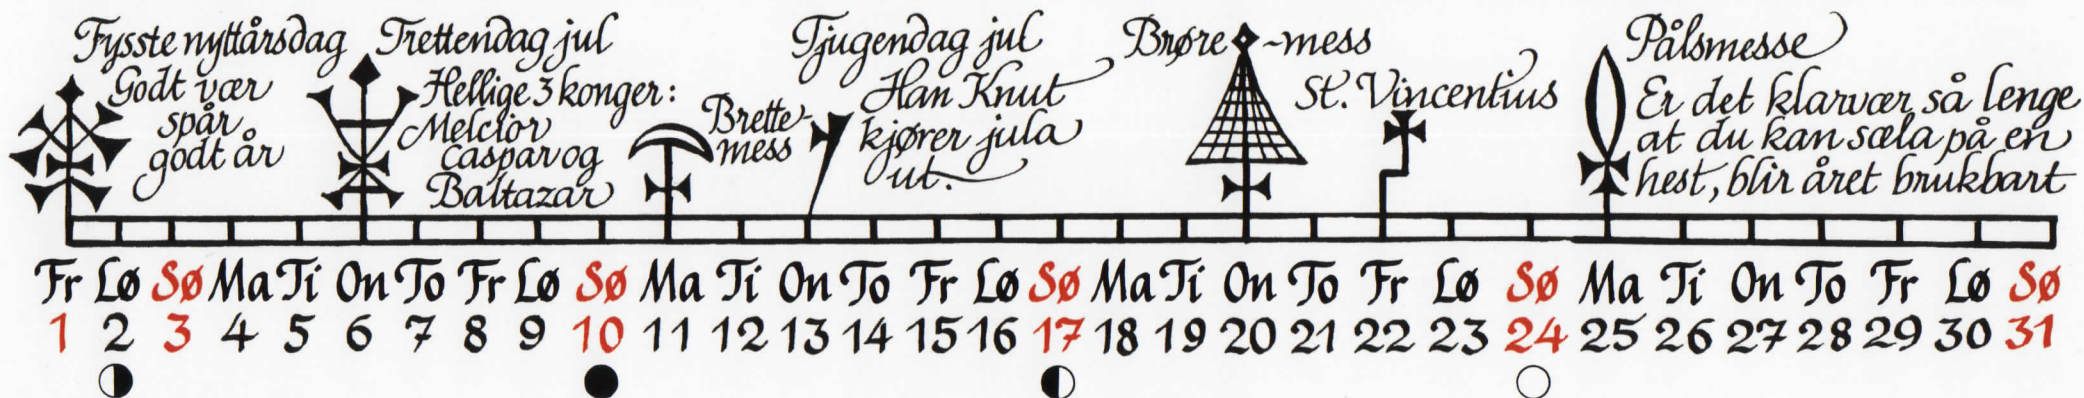 Fysste nyttårsdag
Godt vær
spår
godt år
Trettendag jul
Hellige 3 konger:
Melcior
caspar og
Baltazar
Brette-
mess
Tjugendag jul
Han Knut
kjører jula
ut.
Brøre-mess
St. Vincentius
Pålsmesse
Er det klarvær så lenge
at du kan sæla på en
hest, blir året brukbart
Fr Lø Sø Ma Ti On To Fr Lø Sø Ma Ti On To Fr Lø Sø Ma Ti On To Fr Lø Sø Ma Ti On To Fr Lø Sø
1 2 3 4 5 6 7 8 9 10 11 12 13 14 15 16 17 18 19 20 21 22 23 24 25 26 27 28 29 30 31